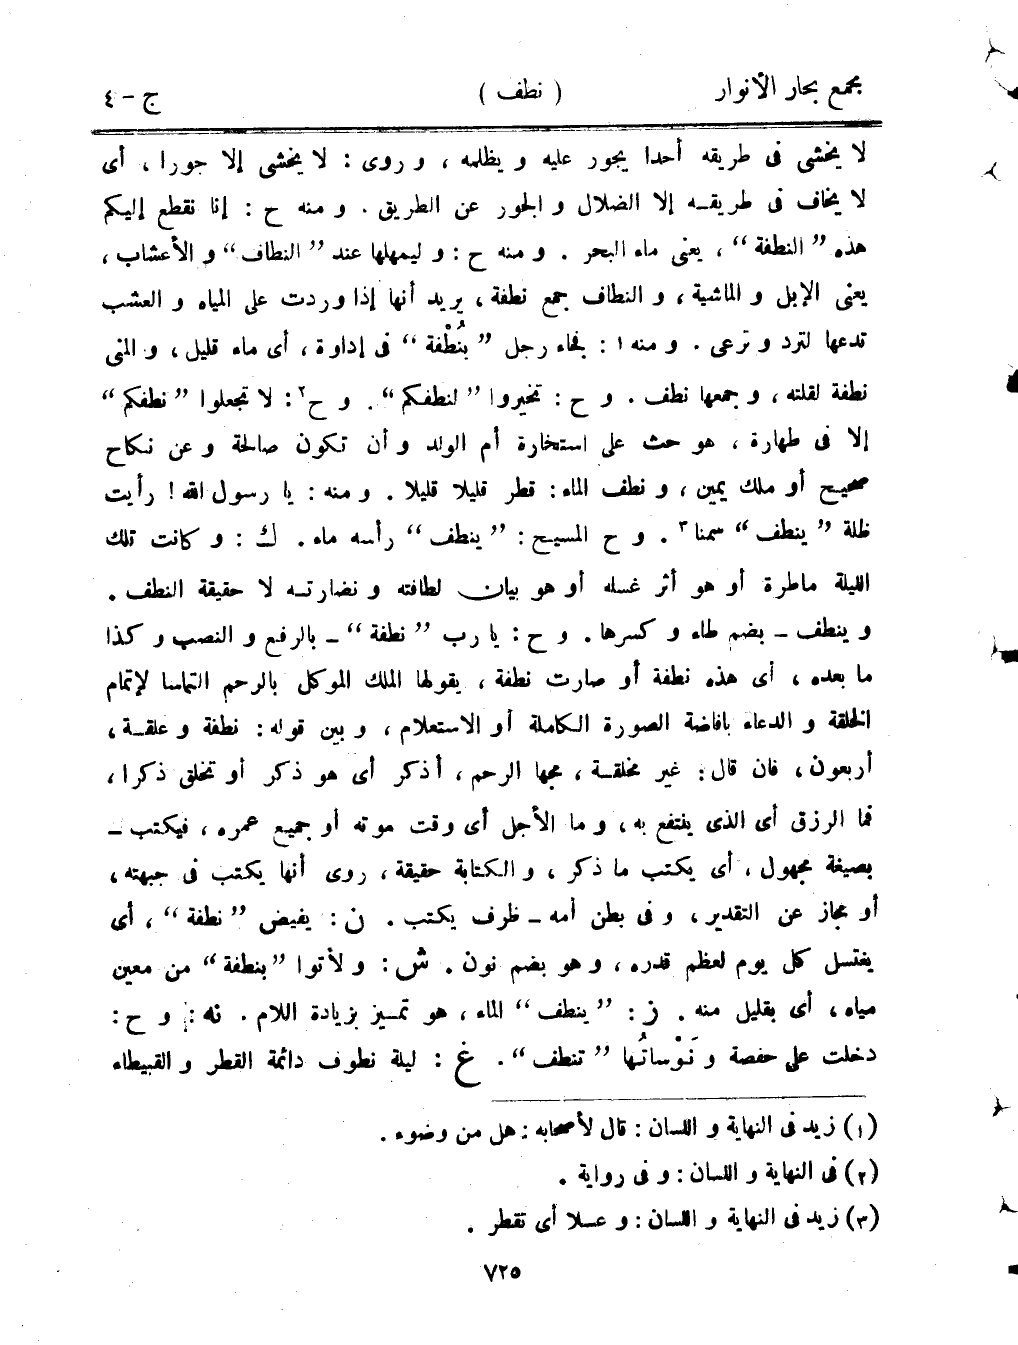 مجمع بحار الأنوار ( نطف ) ج - ٤
لا يخشى فى طريقه أحدا يجور عليه و يظلمه ، و روى : لا يخشى إلا جورا ، أى
لا يخاف فى طريقـه إلا الضلال و الجور عن الطريق . و منه ح : إنا نقطع إليكم
هذه ” النطفة “ ، يعنى ماء البحر . و منه ح : و ليمهلها عند ” النطاف “ و الأعشاب ،
يعنى الإبل و الماشية ، و النطاف جمع نطفة ، يريد أنها إذا وردت على المياه و العشب
تدعها لترد و ترعى . و منه ١ : فجاء رجل ” بنُطْفة “ فى إداوة ، أى ماء قليل ، و المنى
نطفة لقلته ، و جمعها نطف . و ح : تخيروا ” لنطفكم “ . و ح٢ : لا تجعلوا ” نطفكم “
إلا فى طهارة ، هو حث على استخارة أم الولد و أن تكون صالحة و عن نكاح
صحيح أو ملك يمين ، و نطف الماء : قطر قليلا قليلا . و منه : يا رسول الله ! رأيت
ظلة ” ينطف “ سمنا ٣ . و ح المسيح : ” ينطف “ رأسه ماء . ك : و كانت تلك
الليلة ماطرة أو هو أثر غسله أو هو بيان لطافته و نضارتـه لا حقيقة النطف .
و ينطف - بضم طاء و كسرها . و ح : يا رب ” نطفة “ - بالرفع و النصب و كذا
ما بعده ، أى هذه نطفة أو صارت نطفة ، يقولها الملك الموكل بالرحم التماسا لإتمام
الخلقة و الدعاء بافاضة الصورة الكاملة أو الاستعلام ، و بين قوله : نطفة و علقـة ،
أربعون ، فان قال : غير مخلقـة ، مجها الرحم ، أذكر أى هو ذكر أو تخلق ذكرا ،
فما الرزق أى الذى ينتفع به ، و ما الأجل أى وقت موته أو جميع عمره ، فيكتب -
بصيغة مجهول ، أى يكتب ما ذكر ، و الكتابة حقيقة ، روى أنها يكتب فى جبهته ،
أو مجاز عن التقدير ، و فى بطن أمه - ظرف يكتب . ن : يفيض ” نطفة “ ، أى
يغتسل كل يوم لعظم قدره ، و هو بضم نون . ش : و لأتوا ” بنطفة “ من معين
مياه ، أى بقليل منه . ز : ” ينطف “ الماء ، هو تمـيز بزيادة اللام . نه : و ح :
دخلت على حفصة و نَوْساتُها ” تنطف “ . غ : ليلة نطوف دائمة القطر و القبيطاء
(١) زيد فى النهاية و اللسان : قال لأصحابه : هل من وضوء .
(٢) فى النهاية و اللسان : و فى رواية .
(٣) زيد فى النهاية و اللسان : و عسلا أى تقطر .
٧٢٥